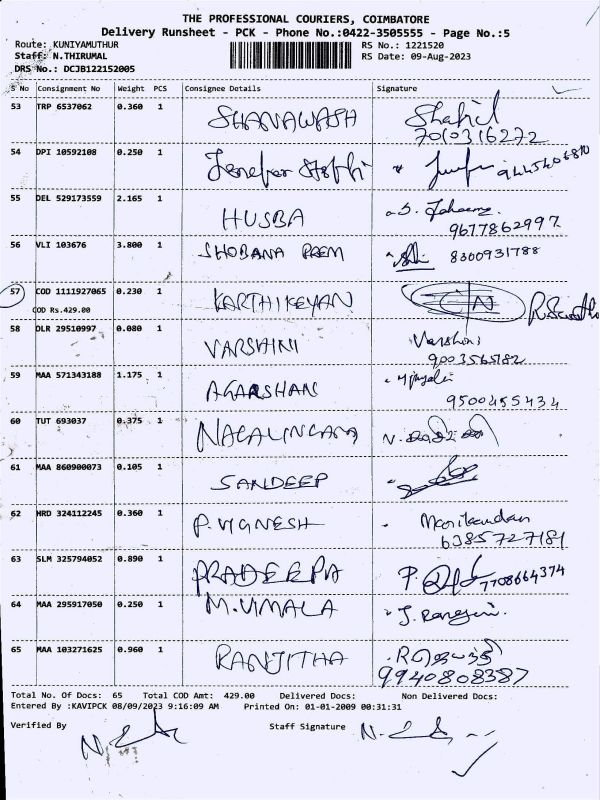 THE PROFESSIONAL COURIERS, COIMBATORE
Delivery Runsheet - PCK - Phone No.:0422-3505555 - Page No.:5
Route: KUNIYAMUTHUR RS No.: 1221520
Staff: N.THIRUMAL RS Date: 09-Aug-2023
DRS No.: DCJB122152005
S No Consignment No Weight PCS Consignee Details Signature
53 TRP 6537062 0.360 1 SHANAWASH Shahid
7010316272
54 DPI 10592108 0.250 1 Jenefer 9445406810
55 DEL 529173559 2.165 1 HUSBA S.
9677862997
56 VLI 103676 3.800 1 SHOBANA PREM 8300931788
57 COD 1111927065 0.230 1 KARTHIKEYAN
COD Rs.429.00
58 DLR 29510997 0.080 1 VARSHINI Varshini
9003565182
59 MAA 571343188 1.175 1 AGARSHAN
9500455434
60 TUT 693037 0.375 1 NAGALINGAM N.
61 MAA 860900073 0.105 1 SANDEEP
62 HRD 324112245 0.360 1 P.VIGNESH Manikandan
6385727181
63 SLM 325794052 0.890 1 PRADEEPA P. 7708664374
64 MAA 295917050 0.250 1 M.VIMALA J. Ranjini.
65 MAA 103271625 0.960 1 RANJITHA
9940808387
Total No. Of Docs: 65 Total COD Amt: 429.00 Delivered Docs: Non Delivered Docs:
Entered By :KAVIPCK 08/09/2023 9:16:09 AM Printed On: 01-01-2009 00:31:31
Verified By Staff Signature